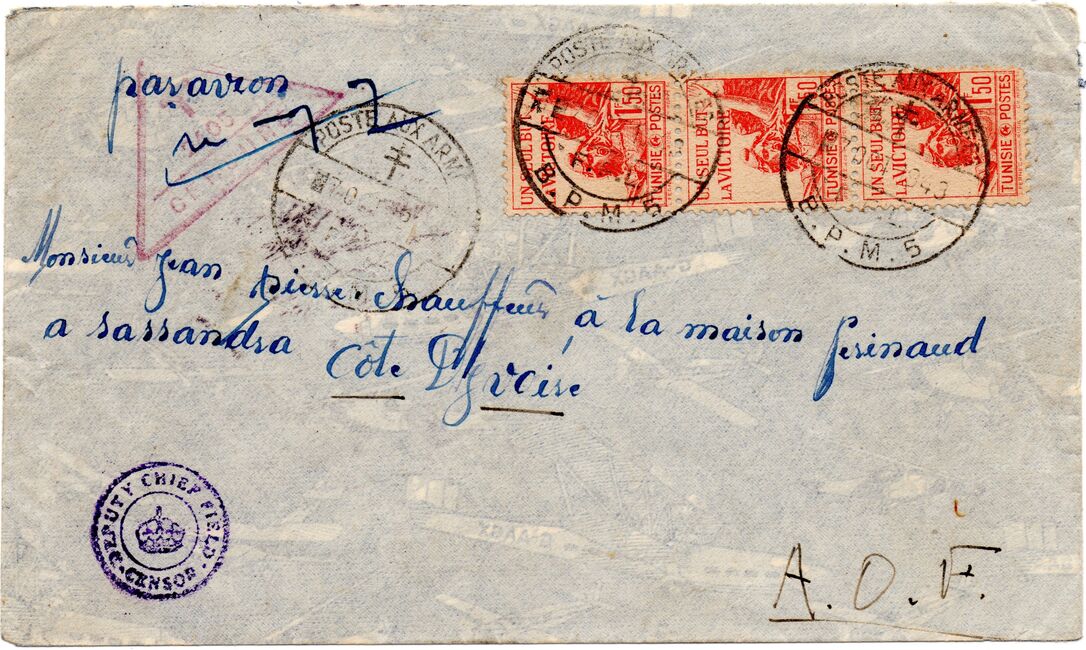 par avion
POSTE AUX ARM
POSTE AUX ARM
B.P.M. 5
POSTE AUX ARMEES
B.P.M. 5
UN SEUL BUT
LA VICTOIRE
1F50
TUNISIE POSTES
UN SEUL BUT
LA VICTOIRE
1F50
TUNISIE POSTES
UN SEUL BUT
LA VICTOIRE
1F50
TUNISIE POSTES
Monsieur Jean pierre Chauffeur à la maison perinaud
a sassandra
Côte D'Yvoire
DEPUTY CHIEF FIELD CENSOR
G-AAGX
A. O. F.